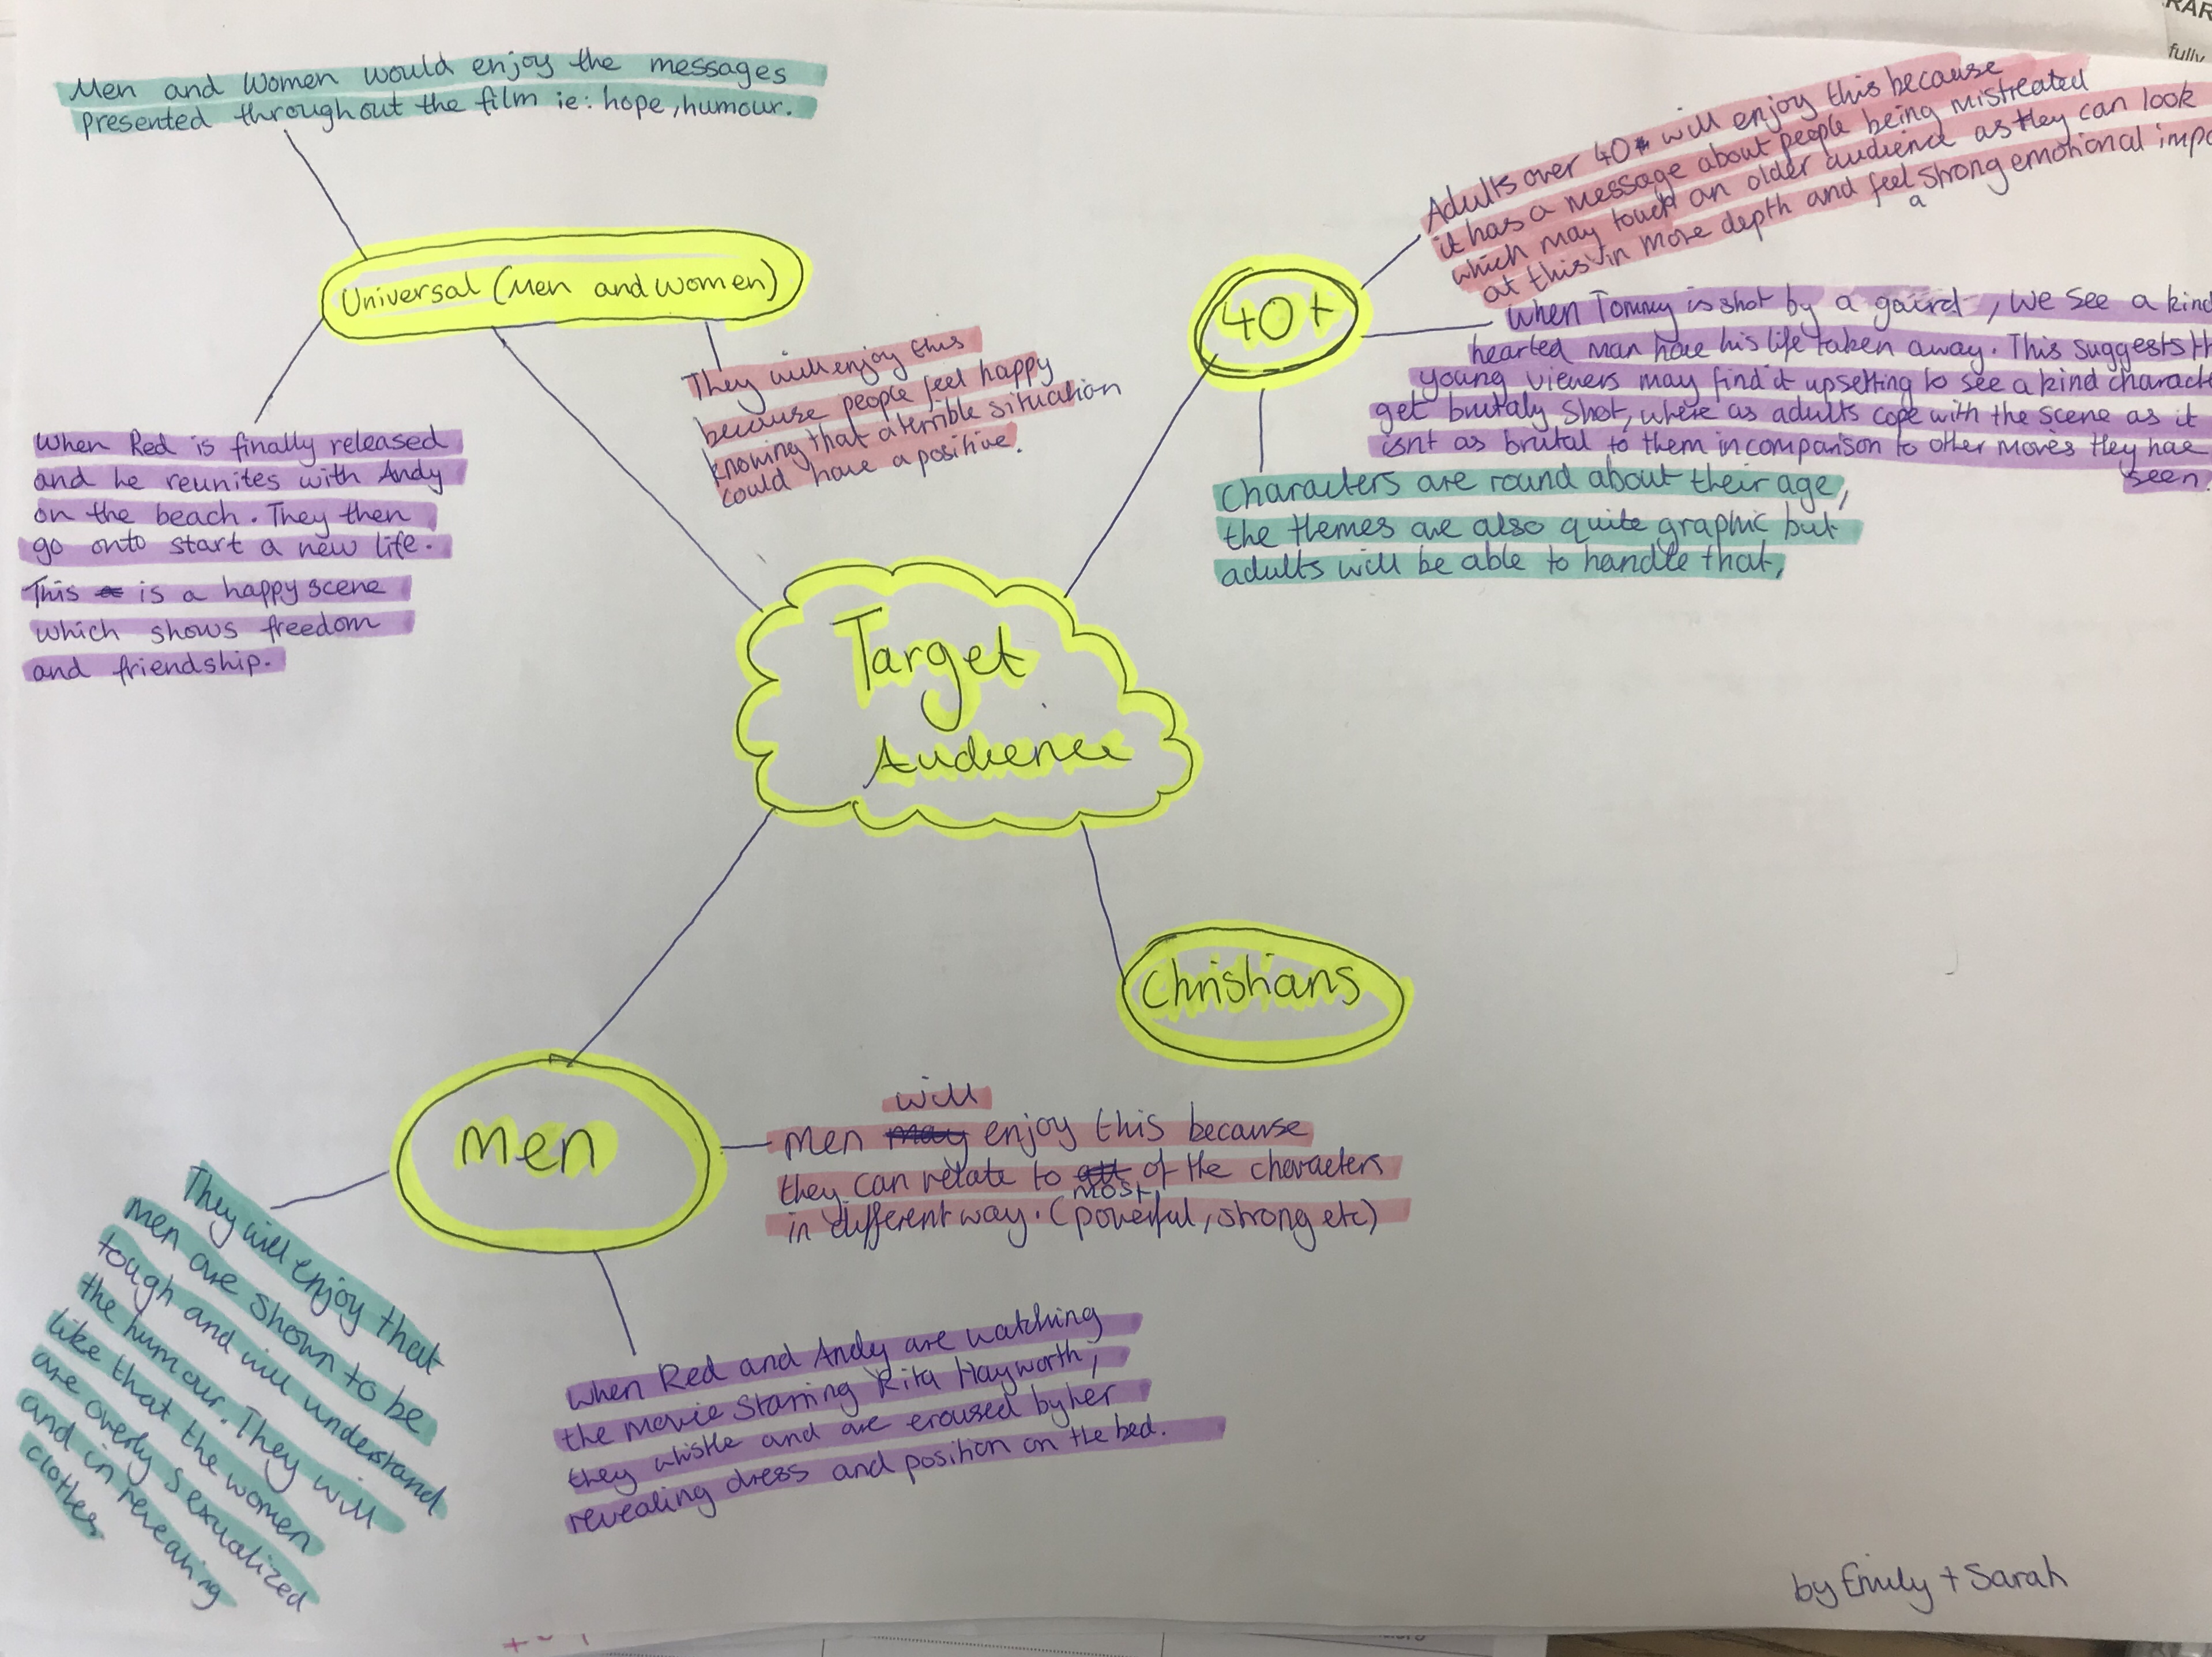 RAR
fully
Men and Women would enjoy the messages
presented throughout the film ie: hope, humour.
Universal (Men and women)
They will enjoy this
because people feel happy
knowing that a terrible situation
could have a positive.
When Red is finally released
and he reunites with Andy
on the beach. They then
go onto start a new life.
This is a happy scene
which shows freedom
and friendship.
40+
Adults over 40 will enjoy this because
it has a message about people being mistreated
which may touch an older audience as they can look
at this in more depth and feel a strong emotional impa
When Tommy is shot by a gaurd, we see a kind
hearted man have his life taken away. This suggests th
young viewers may find it upsetting to see a kind charact
get brutaly shot, where as adults cope with the scene as it
isnt as brutal to them in comparison to other movies they hae
seen.
Characters are round about their age,
the themes are also quite graphic but
adults will be able to handle that,
Target
Audience
Christians
Men
Men will enjoy this because
they can relate to most of the characters
in different way. (powerful, strong etc)
They will enjoy that
men are shown to be
tough and will understand
the humour. They will
like that the women
are overly sexualized
and in revealing
clothes
when Red and Andy are watching
the movie starring Rita Hayworth,
they whistle and are eroused by her
revealing dress and position on the bed.
by Emily + Sarah